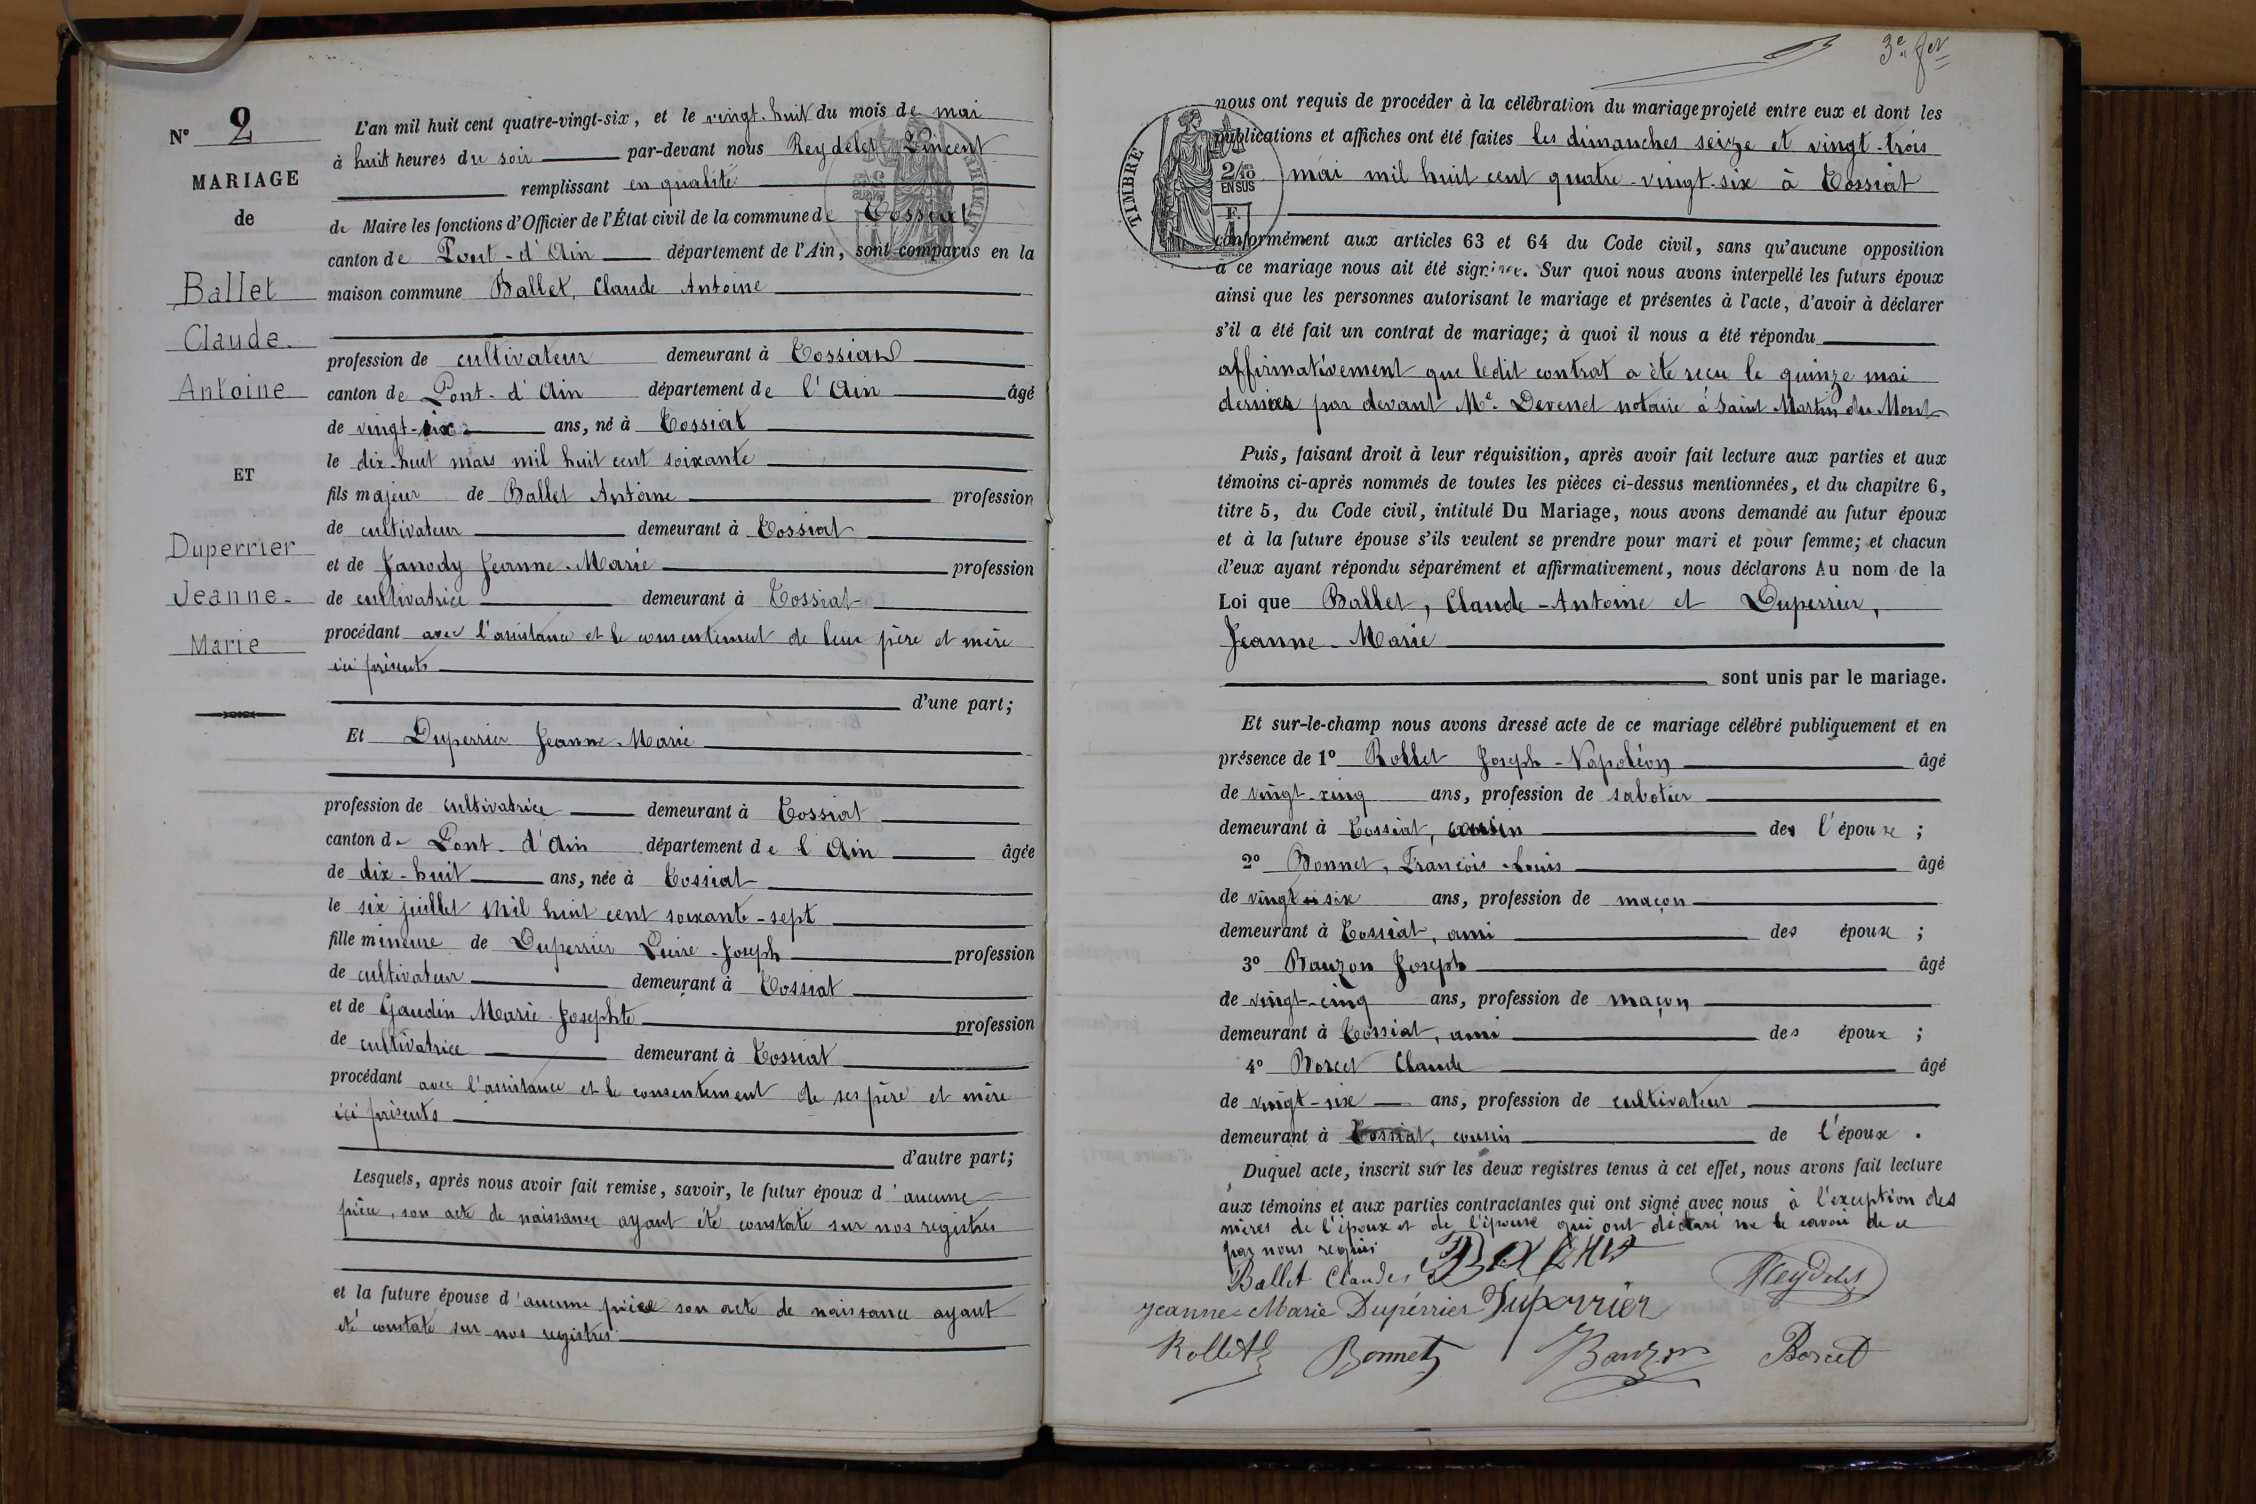 N° 2
MARIAGE
de
Ballet
Claude
Antoine
ET
Duperrier
Jeanne-
Marie
L'an mil huit cent quatre-vingt-six, et le vingt-huit du mois de mai
à huit heures du soir par-devant nous Reydelet Vincent
remplissant en qualité
de Maire les fonctions d'Officier de l'État civil de la commune de Tossiat
canton de Pont-d'Ain département de l'Ain, sont comparus en la
maison commune Ballet, Claude Antoine
profession de cultivateur demeurant à Tossiat
canton de Pont-d'Ain département de l'Ain âgé
de vingt-six ans, né à Tossiat
le dix-huit mars mil huit cent soixante
fils majeur de Ballet Antoine profession
de cultivateur demeurant à Tossiat
et de Janody Jeanne-Marie profession
de cultivatrice demeurant à Tossiat
procédant avec l'assistance et le consentement de leur père et mère
ici présents
d'une part;
Et Duperrier Jeanne-Marie
profession de cultivatrice demeurant à Tossiat
canton de Pont-d'Ain département de l'Ain âgée
de dix-huit ans, née à Tossiat
le six juillet mil huit cent soixante-sept
fille mineure de Duperrier Joseph profession
de cultivateur demeurant à Tossiat
et de Gaudin Marie Josephte profession
de cultivatrice demeurant à Tossiat
procédant avec l'assistance et le consentement de ses père et mère
ici présents
d'autre part;
Lesquels, après nous avoir fait remise, savoir, le futur époux d'aucune
pièce, son acte de naissance ayant été constaté sur nos registres
et la future épouse d'aucune pièce son acte de naissance ayant
été constaté sur nos registres
3e
TIMBRE
2/10
EN SUS
nous ont requis de procéder à la célébration du mariage projeté entre eux et dont les
publications et affiches ont été faites les dimanches seize et vingt-trois
mai mil huit cent quatre-vingt-six à Tossiat
conformément aux articles 63 et 64 du Code civil, sans qu'aucune opposition
à ce mariage nous ait été signifiée. Sur quoi nous avons interpellé les futurs époux
ainsi que les personnes autorisant le mariage et présentes à l'acte, d'avoir à déclarer
s'il a été fait un contrat de mariage; à quoi il nous a été répondu
affirmativement que ledit contrat a été reçu le quinze mai
dernier par devant Me. Devenet notaire à Saint Martin du Mont
Puis, faisant droit à leur réquisition, après avoir fait lecture aux parties et aux
témoins ci-après nommés de toutes les pièces ci-dessus mentionnées, et du chapitre 6,
titre 5, du Code civil, intitulé Du Mariage, nous avons demandé au futur époux
et à la future épouse s'ils veulent se prendre pour mari et pour femme; et chacun
d'eux ayant répondu séparément et affirmativement, nous déclarons Au nom de la
Loi que Ballet, Claude-Antoine et Duperrier,
Jeanne-Marie
sont unis par le mariage.
Et sur-le-champ nous avons dressé acte de ce mariage célébré publiquement et en
présence de 1° Rollet Joseph-Napoléon âgé
de vingt-cinq ans, profession de sabotier
demeurant à Tossiat, cousin de l'épouse ;
2° Bonnet, François Louis âgé
de vingt six ans, profession de maçon
demeurant à Tossiat, ami des époux ;
3° Bauzon Joseph âgé
de vingt-cinq ans, profession de maçon
demeurant à Tossiat, ami des époux ;
4° Borcet Claude âgé
de vingt-six ans, profession de cultivateur
demeurant à Tossiat, cousin de l'époux .
Duquel acte, inscrit sur les deux registres tenus à cet effet, nous avons fait lecture
aux témoins et aux parties contractantes qui ont signé avec nous à l'exception des
mères de l'époux et de l'épouse qui ont déclaré ne le savoir de ce
par nous requis
Ballet Claude Ballet Reydelet
Jeanne-Marie Dupérrier Duperrier
Rollet Bonnet Bauzon Borcet